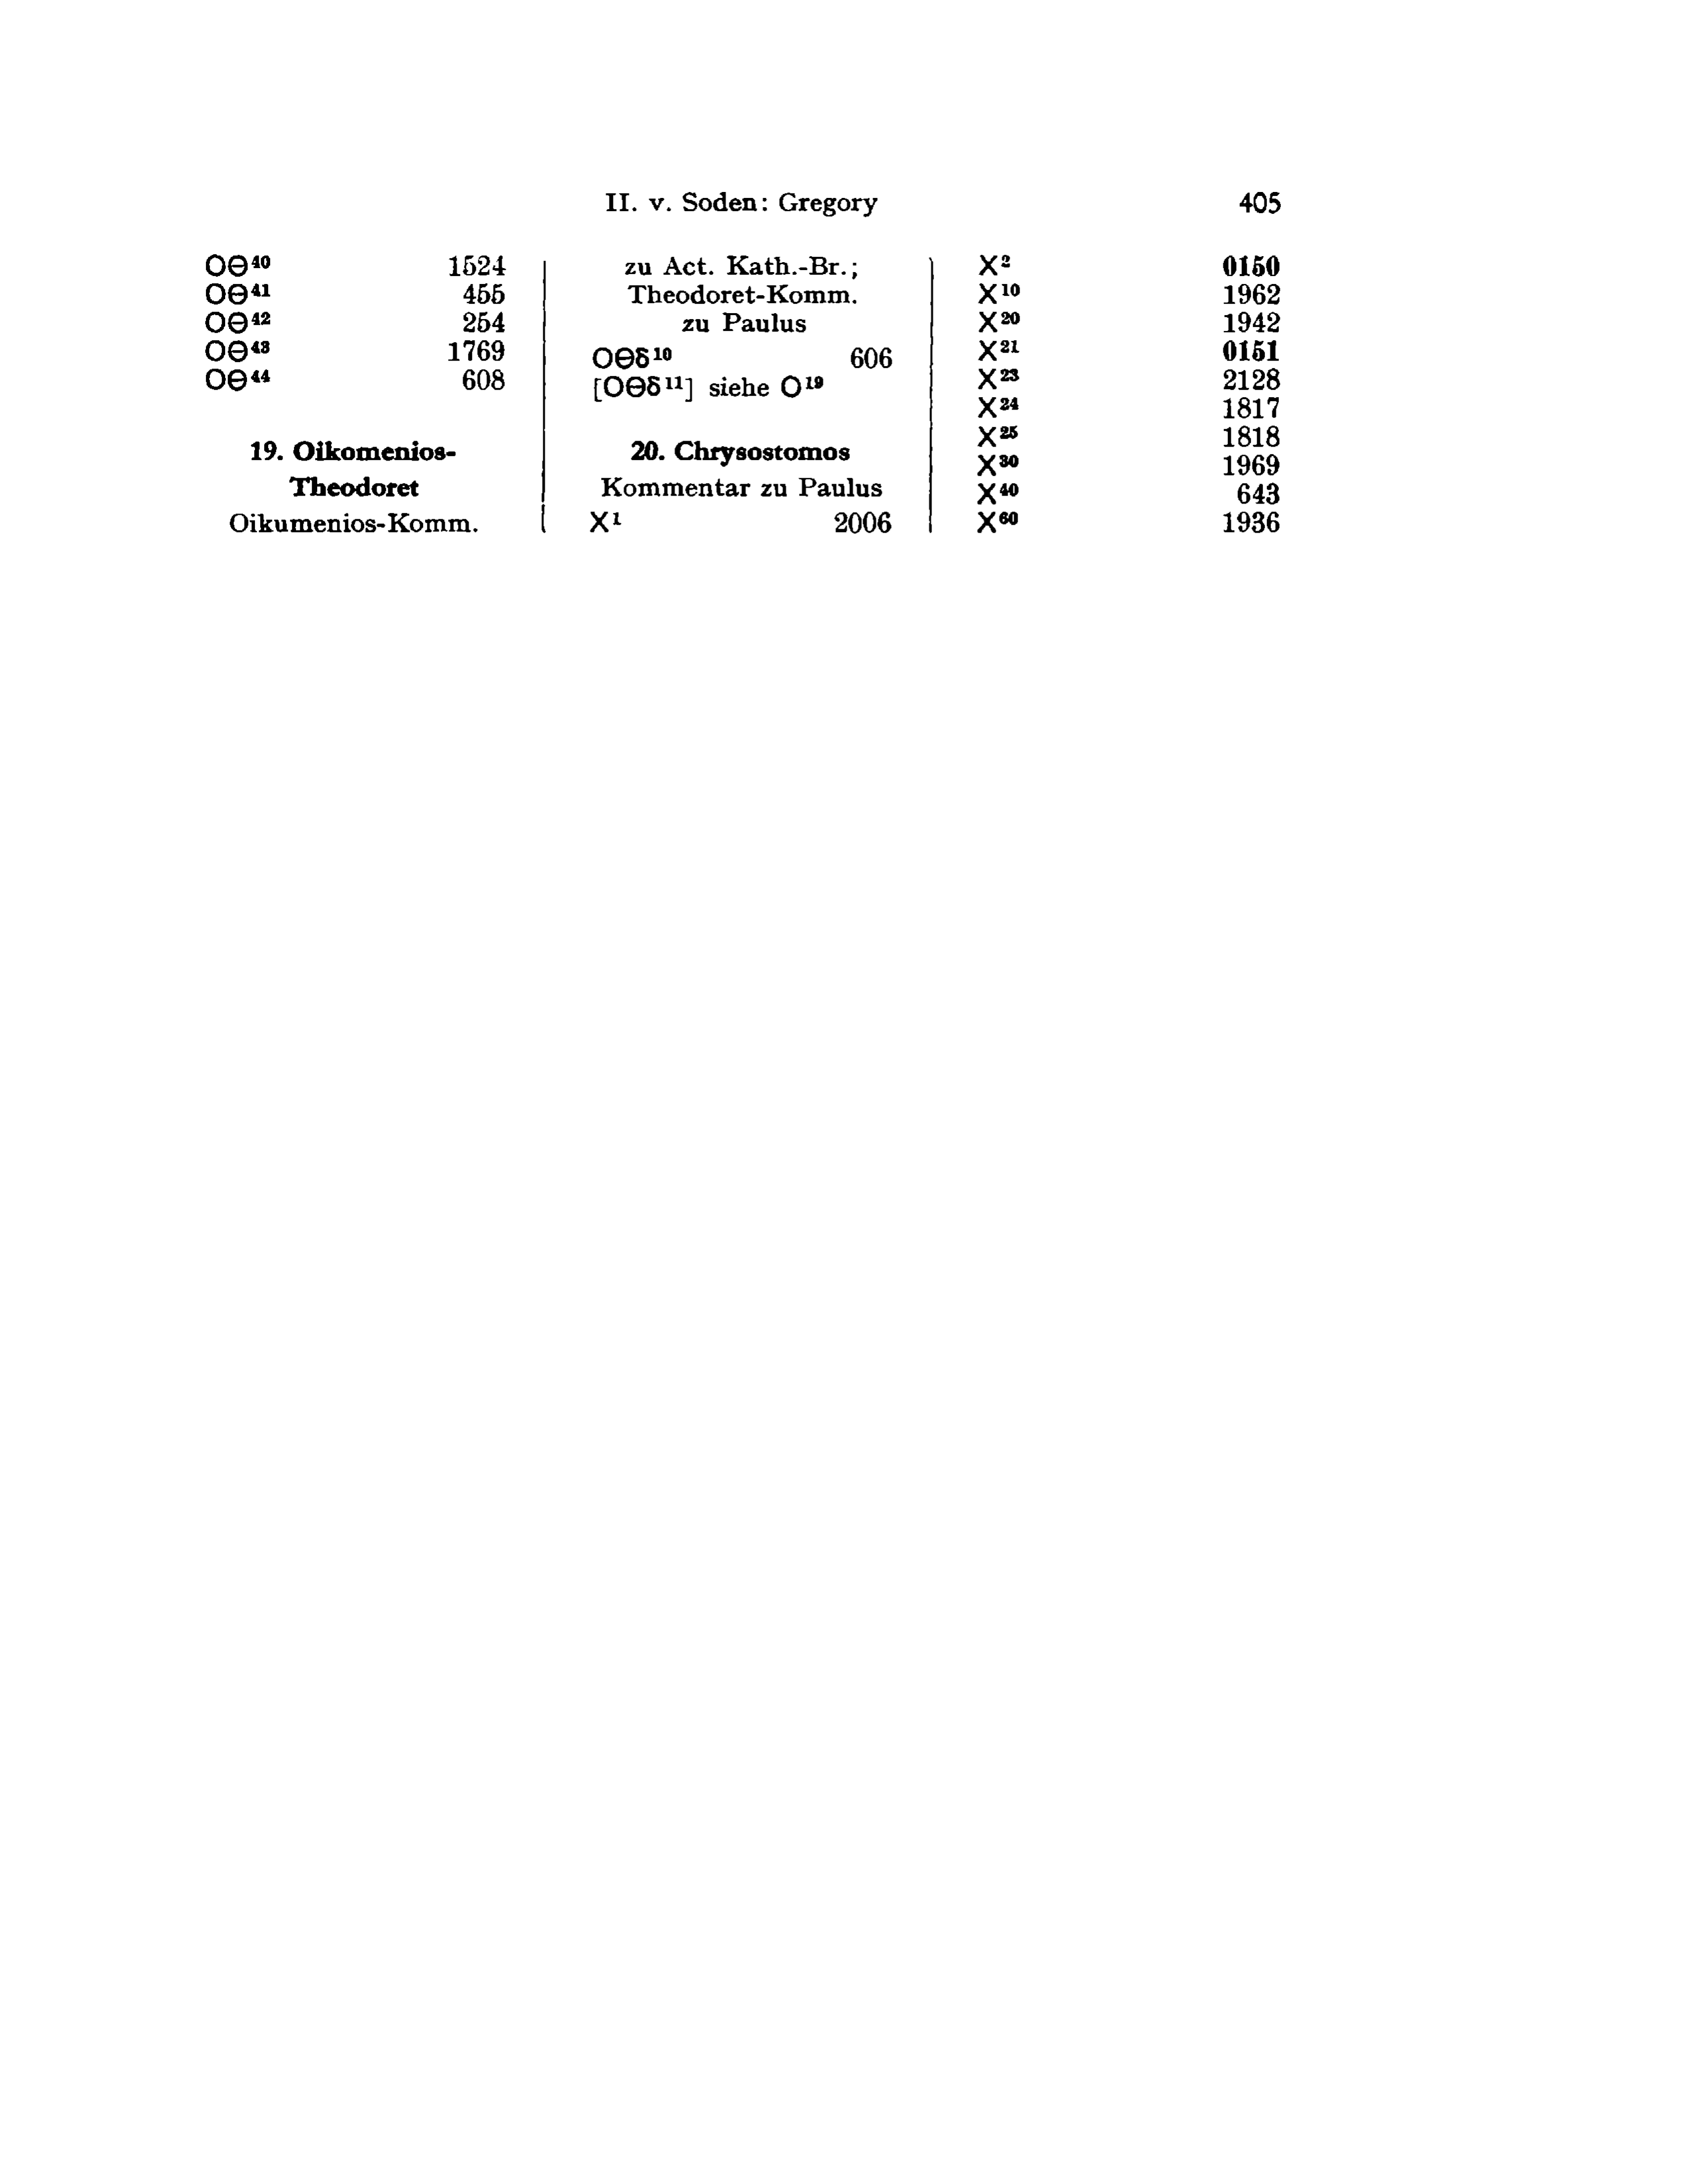 II. v. Soden: Gregory 405
OΘ⁴⁰ 1524
OΘ⁴¹ 455
OΘ⁴² 254
OΘ⁴³ 1769
OΘ⁴⁴ 608
19. Oikomenios-
Theodoret
Oikumenios-Komm.
zu Act. Kath.-Br.;
Theodoret-Komm.
zu Paulus
OΘδ¹⁰ 606
[OΘδ¹¹] siehe O¹⁹
20. Chrysostomos
Kommentar zu Paulus
X¹ 2006
X² 0150
X¹⁰ 1962
X²⁰ 1942
X²¹ 0151
X²³ 2128
X²⁴ 1817
X²⁵ 1818
X³⁰ 1969
X⁴⁰ 643
X⁶⁰ 1936